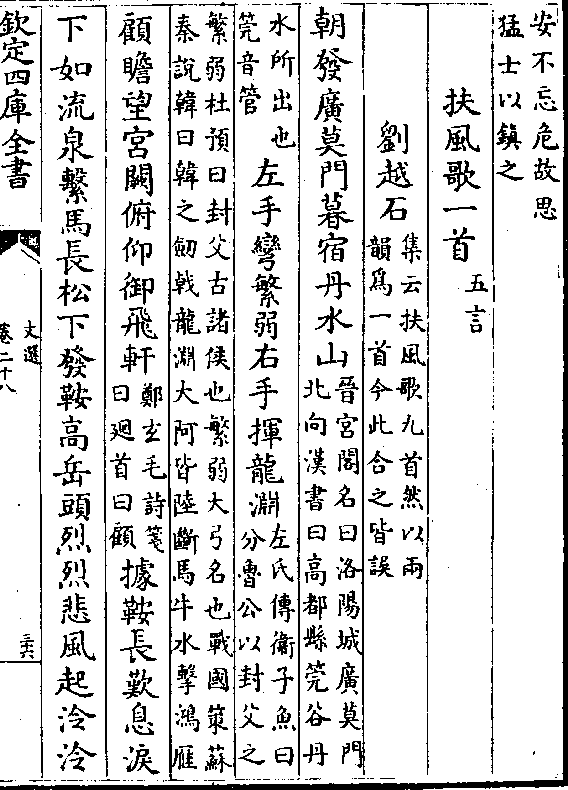 安不忘危故思
猛士以鎮之
扶風歌一首
五言
劉越石
集云扶風歌九首然以兩
韻爲一首今此合之皆誤
朝發廣莫門暮宿丹水山
晉宮閣名曰洛陽城廣莫門
北向漢書曰高都縣莞谷丹
水所出也
莞音管
左手彎繁弱右手揮龍淵
左氏傳衞子魚曰
分魯公以封父之
繁弱杜預曰封父古諸侯也繁弱大弓名也戰國策蘇
秦說韓曰韓之劒戟龍淵大阿皆陸斷馬牛水擊鴻雁
顧瞻望宮闕俯仰御飛軒
鄭玄毛詩箋
曰廻首曰顧
據鞍長歎息淚
下如流泉繫馬長松下發鞍高岳頭烈烈悲風起泠泠
欽定四庫全書
文選
卷二十八
三六